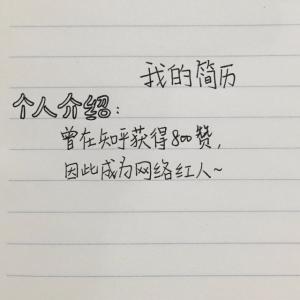 我的简历
个人介绍：
曾在知乎获得800赞，
因此成为网络红人~